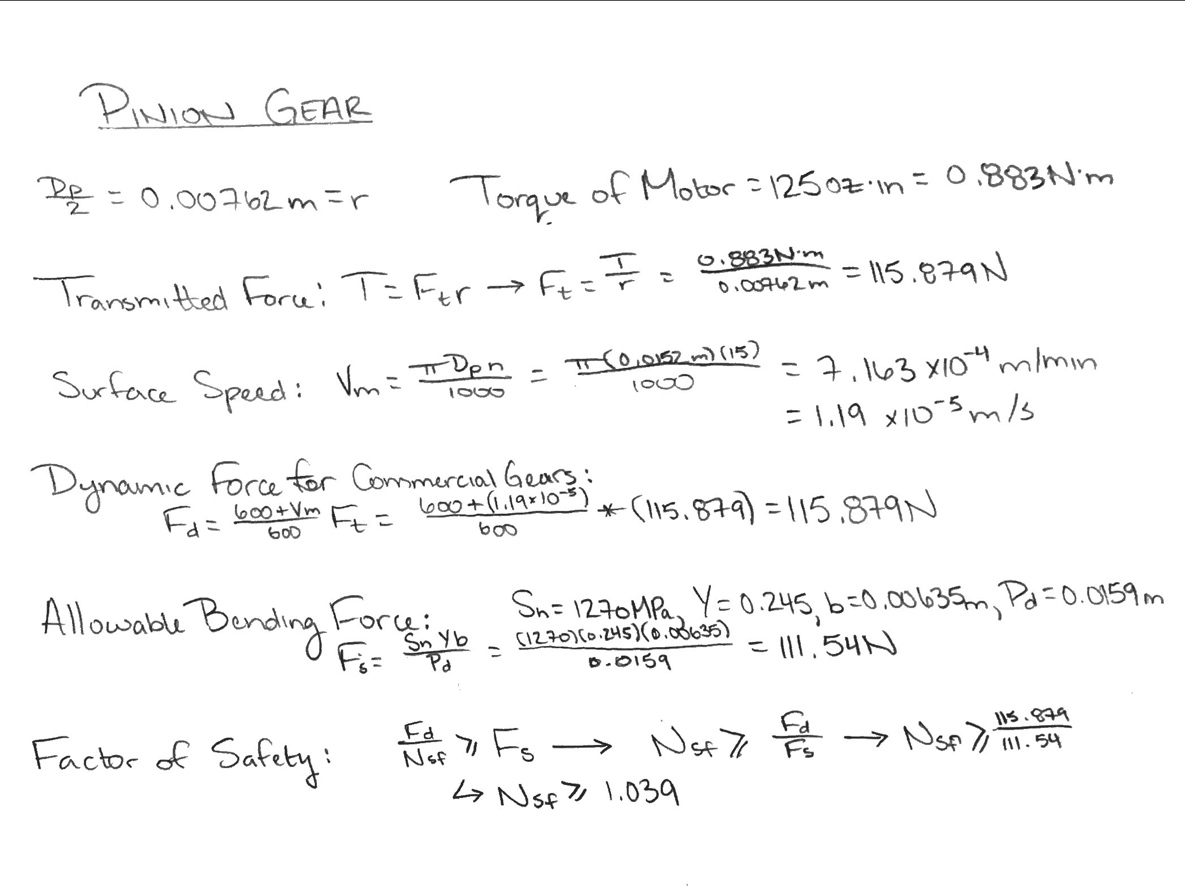 PINION GEAR
Dp/2 = 0.00762m = r Torque of Motor = 125oz·in = 0.883N·m
Transmitted Force: T = Ftr → Ft = T/r = 0.883N·m/0.00762m = 115.879N
Surface Speed: Vm = πDpn/1000 = π(0.0152m)(15)/1000 = 7.163 x10⁻⁴ m/min
= 1.19 x10⁻⁵ m/s
Dynamic Force for Commercial Gears:
Fd = 600+Vm/600 Ft = 600+(1.19x10⁻⁵)/600 * (115.879) = 115.879N
Allowable Bending Force: Sn = 1270MPa, Y = 0.245, b = 0.00635m, Pd = 0.0159m
Fs = SnYb/Pd = (1270)(0.245)(0.00635)/0.0159 = 111.54N
Factor of Safety: Fd/Nsf ⩾ Fs → Nsf ⩾ Fd/Fs → Nsf ⩾ 115.879/111.54
↳ Nsf ⩾ 1.039